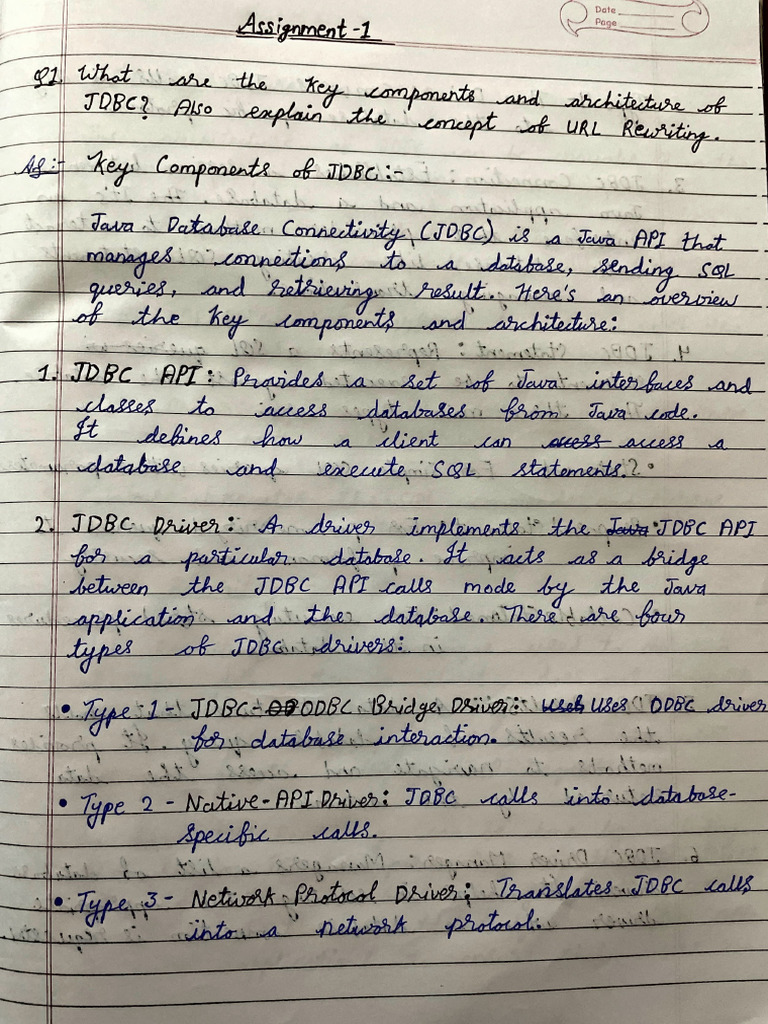 Assignment-1
Date
Page
Q1. What are the key components and architecture of
JDBC? Also explain the concept of URL Rewriting.
As:- Key Components of JDBC:-
Java Database Connectivity (JDBC) is a Java API that
manages connections to a database, sending SQL
queries, and retrieving result. Here's an overview
of the key components and architecture:
1. JDBC API: Provides a set of Java interfaces and
classes to access databases from Java code.
It defines how a client can access access a
database and execute SQL statements.
2. JDBC Driver: A driver implements the Java JDBC API
for a particular database. It acts as a bridge
between the JDBC API calls mode by the Java
application and the database. There are four
types of JDBC drivers:
• Type 1 - JDBC-ODBC Bridge Driver: uses Uses ODBC driver
for database interaction.
• Type 2 - Native-API Driver: JDBC calls into database-
specific calls.
• Type 3 - Network Protocol Driver: Translates JDBC calls
into a network protocol.